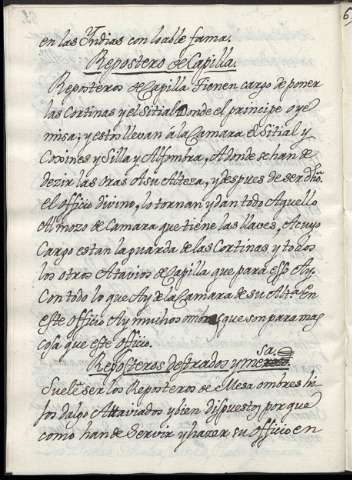 en las Indias con loable fama.
Repostero de Capilla.
Reposteros de Capilla. Tienen cargo de poner
las Cortinas y el Sitial Donde el principe oye
misa, y estos llevan a la Camara el Sitial y
Coxines y Silla y Alfombra, Adonde se han de
dezir las oras a su Alteza, y despues de ser dho
el officio divino, lo tornan y dan todo Aquello
Al mozo de Camara que tiene las llaves, A cuyo
Cargo estan la guarda de las Cortinas y todos
los otros Atavios de Capilla que para esso Ay
Con todo lo que Ay de la Camara de su Alta En
este officio Ay muchos que son para mas
cosa que este officio.
Reposteros destrados y mesa.
Suele ser los Reposteros de Mesa ombres hi
jos dalgo Attaviados y bien dispuestos por que
como han de Servir y hazer su officio en